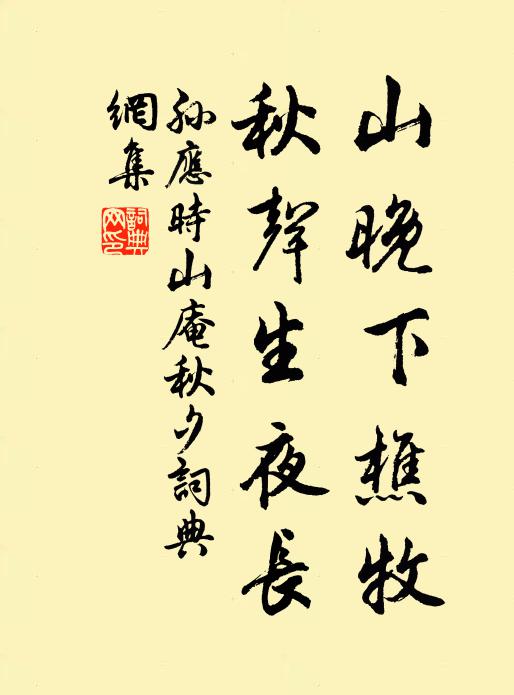 山晚下樵牧
秋聲生夜長
孫應時山庵秋夕詞典
網集
詞典
网印